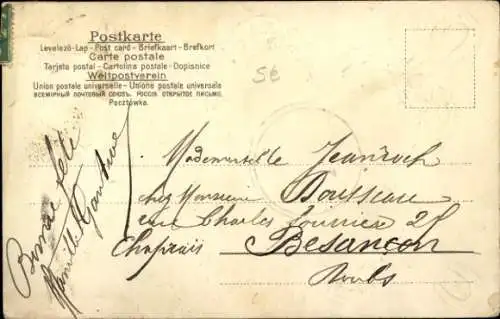 Postkarte
Levelező-Lap - Post card - Briefkaart - Brefkort
Carte postale
Tarjeta postal - Cartolina postale - Dopisnice
Weltpostverein
Union postale universelle - Unione postale universale
ВСЕМІРНЫЙ ПОЧТОВЫЙ СОЮЗЪ. РОССІЯ ОТКРЫТОЕ ПИСЬМО.
Pocztówka.
5€
Bonne fête
Famille
Mademoiselle Jeanroch
chez Monsieur Boisseau
rue Charles Fourrier 25
Chaprais Besançon
Doubs